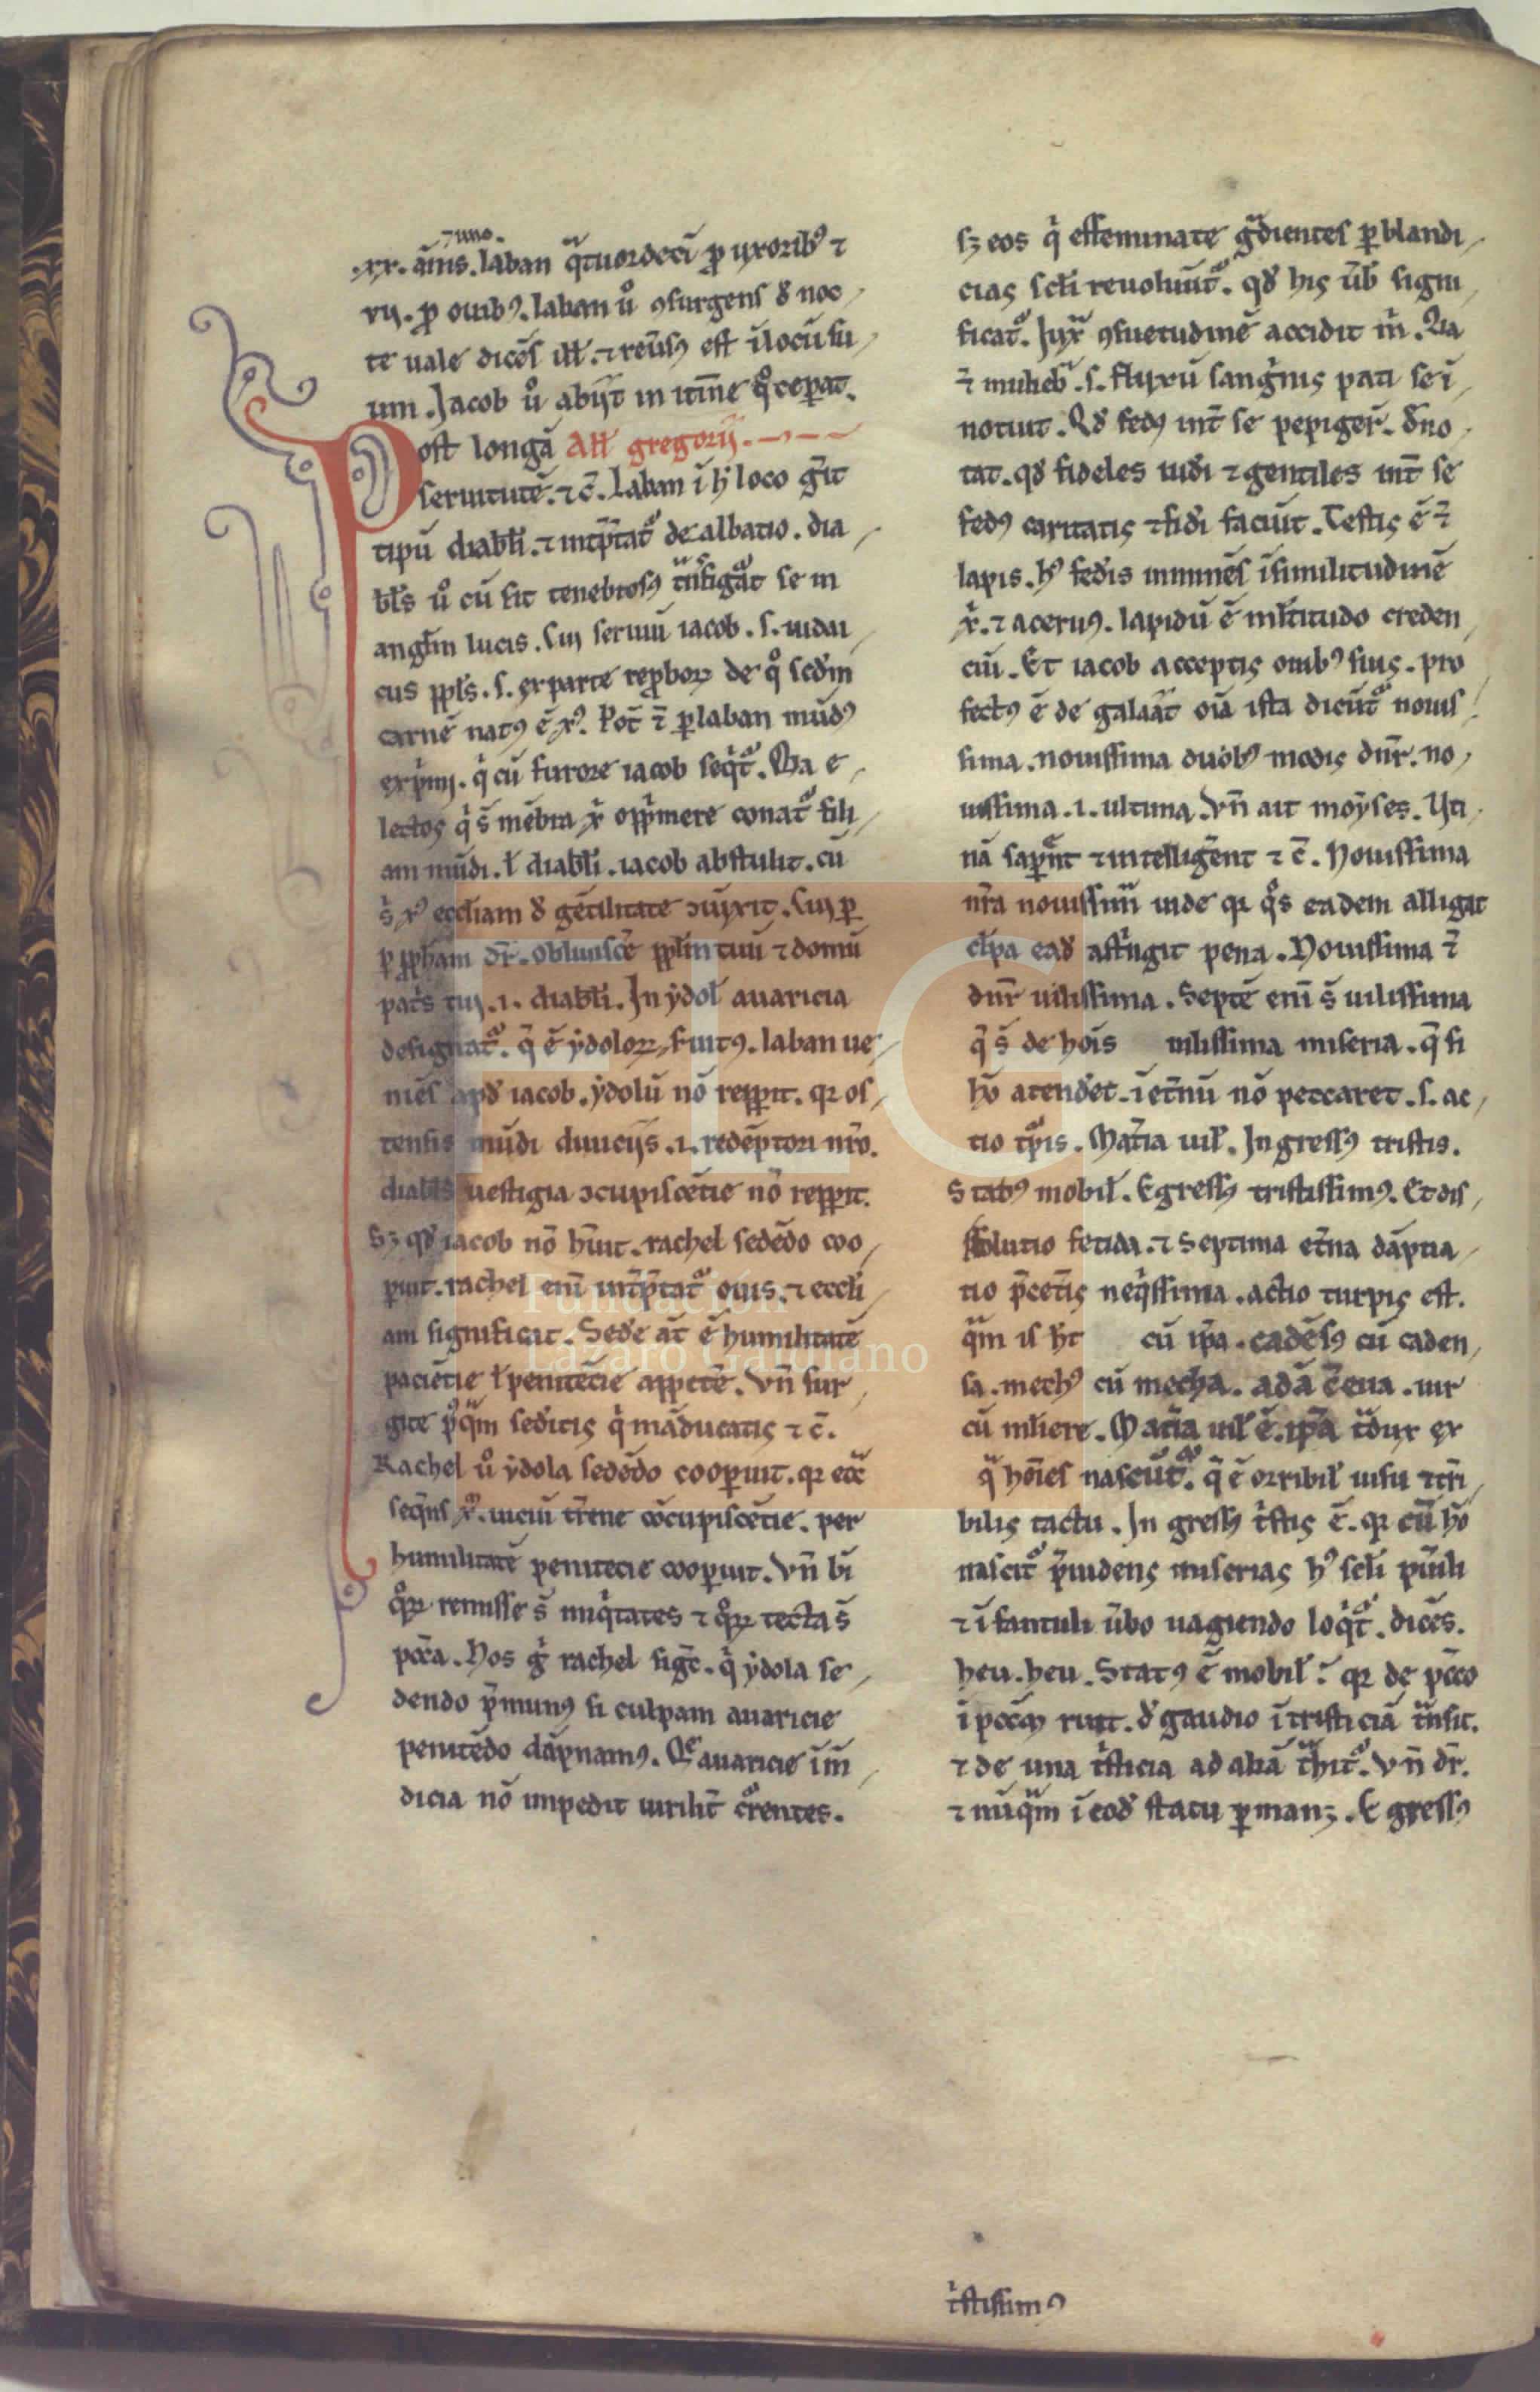 ⁊ uno.
.xx. ãnis. laban q̃tuordeci ̃ ꝓ uxorib᷒ ⁊
vıȷ. ꝓ ouib᷒. laban u̾ ꝯsurgens đ noc
te uale dicẽs ill̾. ⁊ reu̾sꝰ est ĩ locũ su
um. Jacob u̾ abijt in itine̾ qͦ ceꝑat.
Post longã All̾ gregorij.
seruitutẽ. ⁊ c̃. laban ĩ h̾ loco g̾it
tipũ diabl̾i. ⁊ int̾p̾tat᷑ de albatio. dia
bl̾s u̾ cũ sit tenebrosꝰ t̾nsfigᵃt se in
angl̾m lucis. Cui seruiũ iacob. s. iudai
cus ppl̾s. s. ex parte reꝓboꝝ de qͦ scd̾m
carnẽ natꝰ ẽ xꝰ. Pot̾ ⁊̃ ꝑ laban mũdꝰ
exp̾mi. qͥ cũ furore iacob seqͥt᷑. Qia e
lectos qͥ s̃ mẽbra xͥ opp̾mere conat᷑ fili
am mũdi. l̾ diabl̾i. iacob abstulit. cũ
sͥ xꝰ eccl̾iam đ gẽtilitate ↄiũxit. Cui ꝑ
ꝓpham dr̃. obliuisce̾ ppl̾m tuũ ⁊ domũ
pat̾s tui. .i. diabl̾i. In ẏdol̾ auaricia
designat᷑. q̃ ẽ ẏdoloꝝ fuitꝰ. laban ue
niẽs apđ iacob. ẏdolũ nõ repꝑit. qꝛ os
tensis mũdi diuicijs .i. redẽptori nr̃o.
diabl̾s uestigia ↄcupiscẽtie nõ repꝑit.
Sꝫ qđ iacob nõ h̾uit. rachel sedẽdo coo
ꝑuit. rachel eni ̃ int̾p̾tat᷑ ouis. ⁊ eccl̾i
am significat. Sede̾ at̃ ẽ humilitatẽ
paciẽtie l̾ penitẽcie appete̾. Vn̄ sur
gite pꝰqᵃm sed̾itis qͥ mãducatis ⁊ c̃.
Rachel u̾ ẏdola sedẽdo cooꝑuit. qꝛ ecc̾
seq̃ns xꝰ. uiciũ t̾rene cõcupiscẽtie. per
humilitatẽ penitecie cooꝑuit. Vn̄ bĩ
qͦꝝ remisse s̃ iniqͥtates ⁊ qͦꝝ tecta s̃
pcc̃a. Nos g̾ rachel sigc̃. qͥ ẏdola se
dendo p̃mimꝰ si culpam auaricie
penitẽdo dãpnamꝰ. Qͤ auaricie ĩm̃
dicia nõ impedit uirilit̾ c̾rentes.
sꝫ eos qͥ effeminate gᵃdientes ꝑ blandi
cias scl̾i reuoluũt᷑. qđ his ũb̾ signi
ficat᷑. Iuxᵃ ꝯsuetudinẽ accidit m̾. Qia
⁊̃ muliebᵃ. s. fluxũ sangͥnis pati se ĩ
notuit. Qđ fedꝰ int̾ se pepiger̾. đno
tat. qđ fideles iud̾i ⁊ gentiles int̾ se
fedꝰ caritatis ⁊ fid̾i faciũt. Testis ẽ ⁊̃
lapis. hꝰ fed̾is inmnẽs ĩ similitudinẽ
xͥ. ⁊ aceruꝰ. lapidũ ẽ ml̾titudo creden
ciũ. Et iacob acceptis ouibꝰ suis. pro
fectꝰ ẽ de galaat oĩa ista dicũt᷑ nouis
sima. nouissima duobꝰ modis dnr̃. no
uissima .i. ultima. Vn̄ ait moẏses. Uti
nã saꝑẽt ⁊ intelligẽnt ⁊ c̃. Nouissima
nr̃a nouissim̃ inde qꝛ qͦs eadem alligat
cl̾pa eađ ast̾ngit pena. Nouissima ⁊̃
dnr̃ uilissima. Septẽ eni ̃ s̃ uilissima
q̃ s̃ de hoĩs uilissima miseria. q̃ si
hõ atend̾et. ĩ et̾nũ nõ peccaret. s. ac
tio tꝑis. Mat̾ia uil̾. Ingressꝰ tristis.
Statꝰ mobil̾. Egressꝰ tristissimꝰ. Et dis
solutio fetida. ⁊ septima et̾na dãpna
tio p̃cet̾is neqͥssima. actio turpis est.
qᵃm is h̾t cũ ip̃a. cadẽsꝰ cũ caden
sa. mechꝰ cũ mecha. adã c̃ eua. uir
cũ ml̾iere. Mat̾ia uil̾ ẽ. ip̃a t̾dux ex
qᵃ hoĩes nascũt᷑. q̃ ẽ orribil̾ uisu ⁊ t̾ri
bilis tactu. In gressꝰ tͥstis ẽ. qꝛ cũ hõ
nascit᷑ p̃uidens miserias hꝰ scl̾i pͥuili
⁊ ĩfantuli ũbo uagiendo loqͥt᷑. dicẽs.
heu. heu. Statꝰ ẽ mobil̾. qꝛ de pcc̃o
ĩ pcc̃m ruit. đ gaudio ĩ tristiciã t̾nsit.
⁊ de una tͥsticia ad aliã t̾hit᷑. Vn̄ dr̃.
⁊ nũqᵃm ĩ eođ statu ꝑmanꝫ. Egressꝰ
tͥstissimꝰ
Fundación
Lázaro Galdiano
FLG